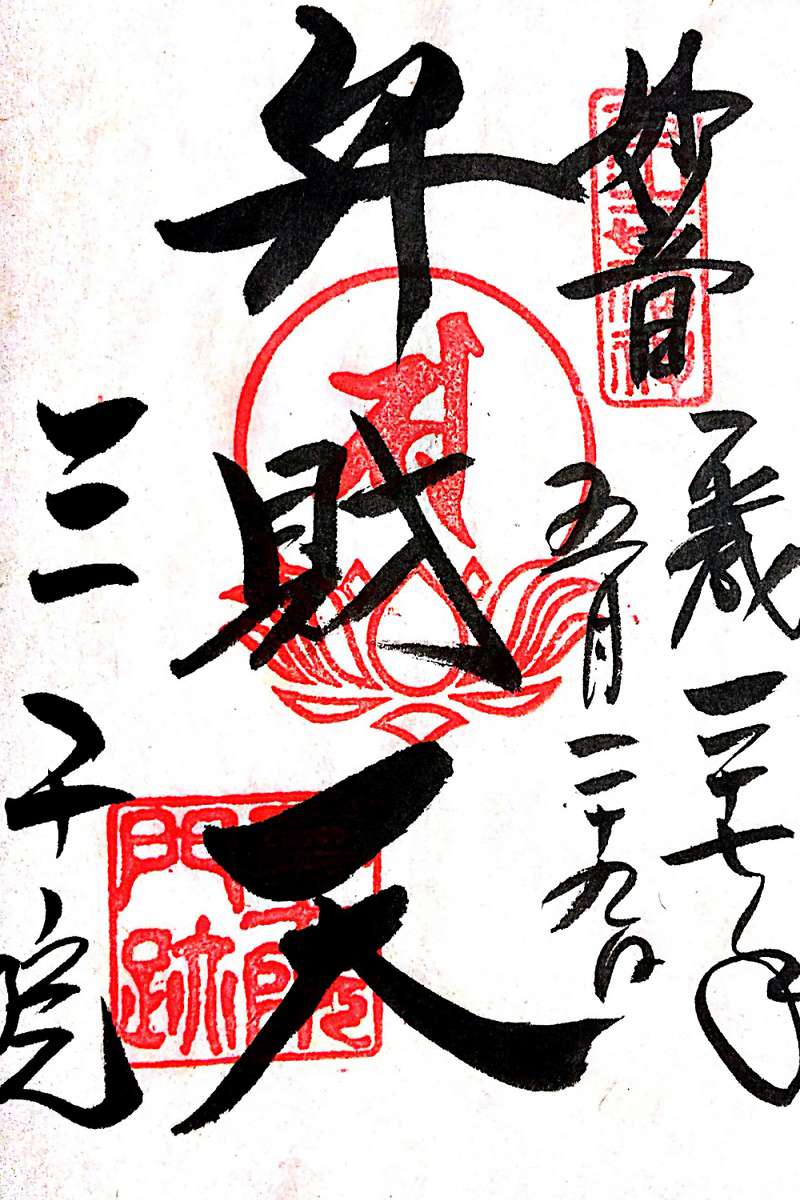 妙音
弁財天
平成二十七年
五月二十九日
三千院
門跡